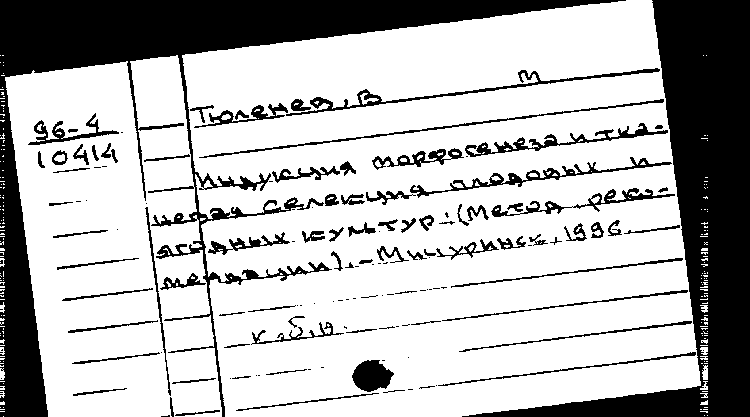 96-4
10414
Тюленев, В. М
Индукция морфогенеза и тка-
невая селекция плодовых и
ягодных культур: (Метод. реко-
мендации).-Мичуринск, 1996.
к.б.н.